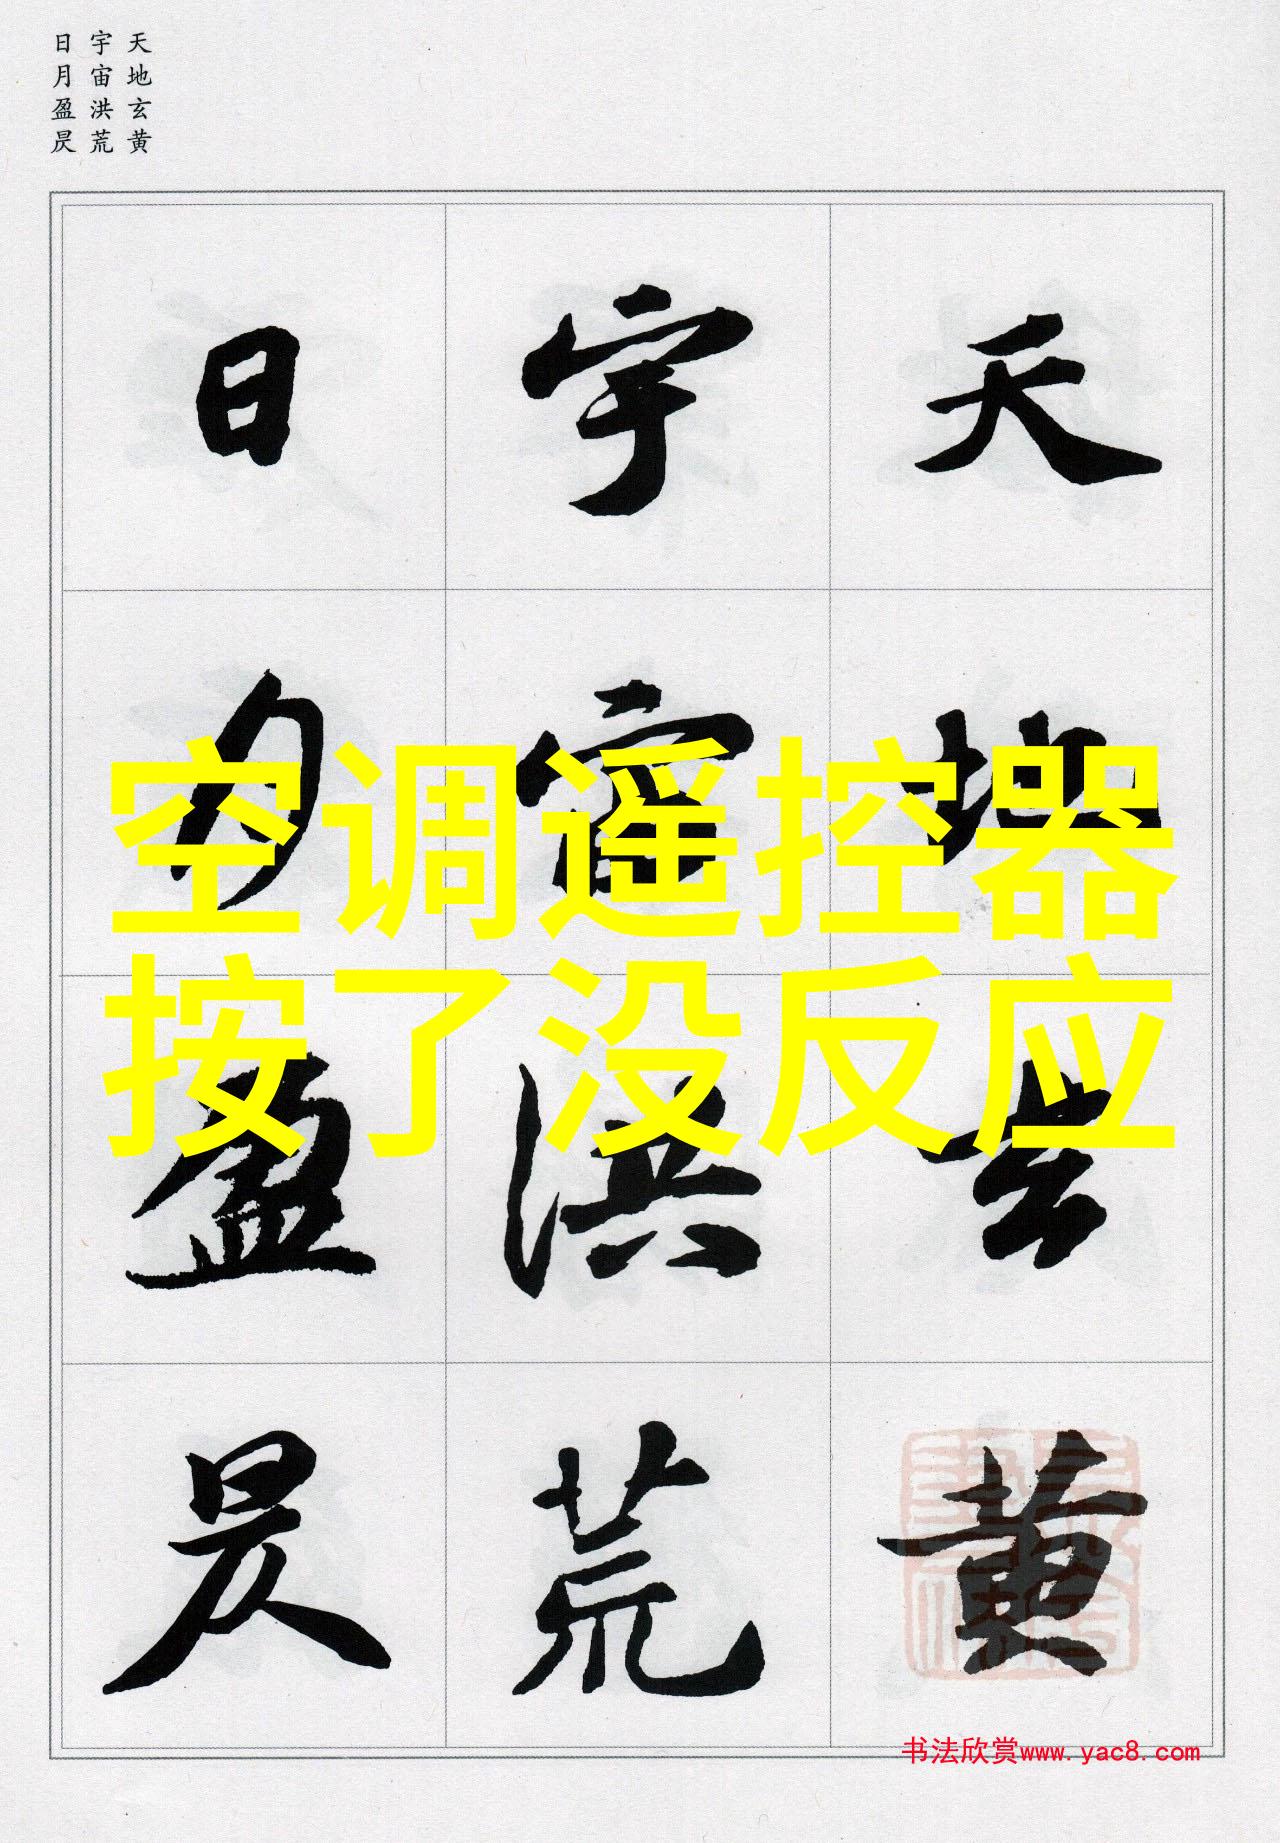 天地玄黄
宇宙洪荒
日月盈昃
天地玄黄
宇宙洪荒
日月盈昃
空调遥控器
按了没反应
书法欣赏www.yac8.com